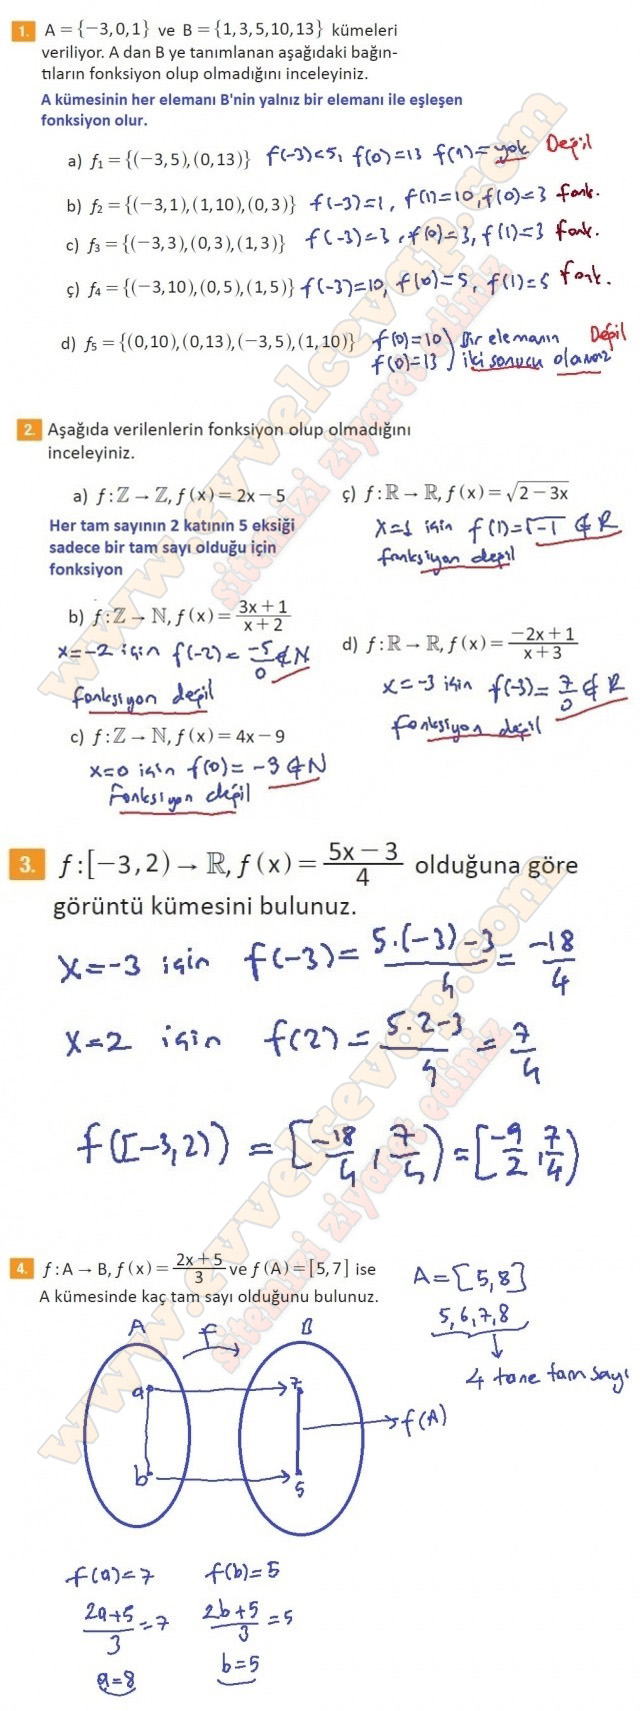 1. A = {−3, 0, 1} ve B = {1, 3, 5, 10, 13} kümeleri
veriliyor. A dan B ye tanımlanan aşağıdaki bağın-
tıların fonksiyon olup olmadığını inceleyiniz.
A kümesinin her elemanı B'nin yalnız bir elemanı ile eşleşen
fonksiyon olur.
a) f₁ = {(−3, 5), (0, 13)} f(-3)=5, f(0)=13 f(1)=yok Değil
b) f₂ = {(−3, 1), (1, 10), (0, 3)} f(-3)=1, f(1)=10, f(0)=3 fonk.
c) f₃ = {(−3, 3), (0, 3), (1, 3)} f(-3)=3, f(0)=3, f(1)=3 fonk.
ç) f₄ = {(−3, 10), (0, 5), (1, 5)} f(-3)=10, f(0)=5, f(1)=5 fonk.
d) f₅ = {(0, 10), (0, 13), (−3, 5), (1, 10)} f(0)=10 Bir elemanın Değil
f(0)=13 iki sonucu olamaz
2. Aşağıda verilenlerin fonksiyon olup olmadığını
inceleyiniz.
a) f : ℤ → ℤ, f(x) = 2x − 5
Her tam sayının 2 katının 5 eksiği
sadece bir tam sayı olduğu için
fonksiyon
b) f : ℤ → ℕ, f(x) = (3x + 1)/(x + 2)
x=-2 için f(-2) = -5/0 ∉ N
fonksiyon değil
c) f : ℤ → ℕ, f(x) = 4x − 9
x=0 için f(0) = -3 ∉ N
Fonksiyon değil
ç) f : ℝ → ℝ, f(x) = √(2 − 3x)
x=1 için f(1) = √-1 ∉ R
fonksiyon değil
d) f : ℝ → ℝ, f(x) = (−2x + 1)/(x + 3)
x=-3 için f(-3) = 7/0 ∉ R
fonksiyon değil
3. f : [−3, 2) → ℝ, f(x) = (5x − 3)/4 olduğuna göre
görüntü kümesini bulunuz.
x=-3 için f(-3) = (5.(-3)-3)/4 = -18/4
x=2 için f(2) = (5.2-3)/4 = 7/4
f([-3,2)) = [-18/4, 7/4) = [-9/2, 7/4)
4. f : A → B, f(x) = (2x + 5)/3 ve f(A) = [5, 7] ise
A kümesinde kaç tam sayı olduğunu bulunuz.
A = [5,8]
5,6,7,8
4 tane tam sayı
A f B
a 7
f(A)
b 5
f(a)=7 f(b)=5
(2a+5)/3 = 7 (2b+5)/3 = 5
a=8 b=5
www.evvelcevap.com
sitemizi ziyaret ediniz
www.evvelcevap.com
sitemizi ziyaret ediniz
www.evvelcevap.com
sitemizi ziyaret ediniz